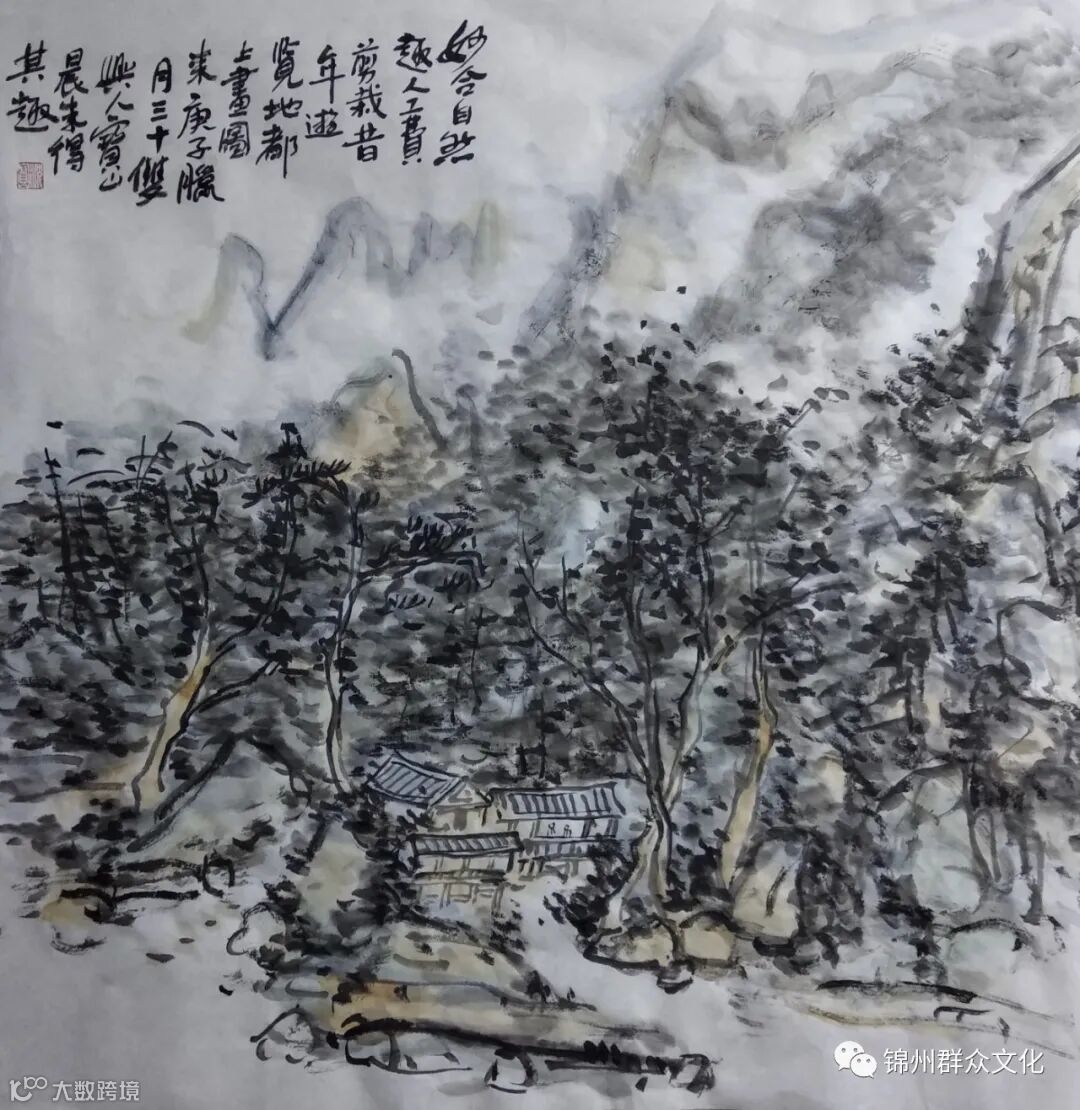 妙合自然
趣人工費
剪裁昔
年遊
覧地都
上畫圖
来庚子臘
月三十雙
興人寶山
晨未得
其趣
锦州群众文化
大数跨境